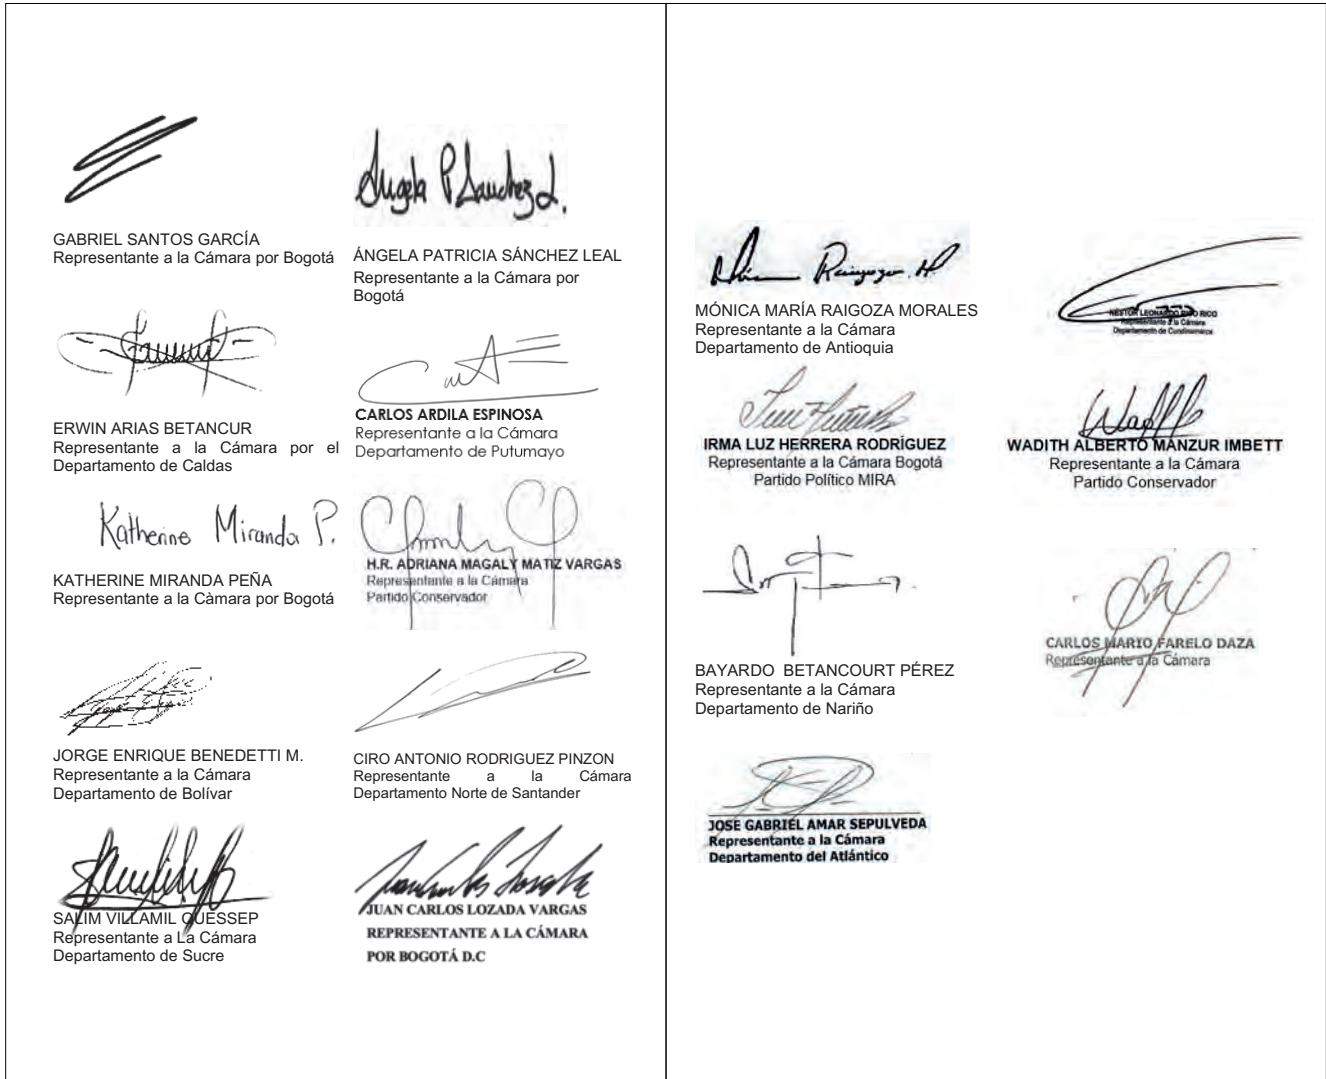 Angela P Sanchez L.
GABRIEL SANTOS GARCÍA
Representante a la Cámara por Bogotá
ÁNGELA PATRICIA SÁNCHEZ LEAL
Representante a la Cámara por
Bogotá
ERWIN ARIAS BETANCUR
Representante a la Cámara por el
Departamento de Caldas
CARLOS ARDILA ESPINOSA
Representante a la Cámara
Departamento de Putumayo
Katherine Miranda P.
KATHERINE MIRANDA PEÑA
Representante a la Càmara por Bogotá
H.R. ADRIANA MAGALY MATIZ VARGAS
Representante a la Cámara
Partido Conservador
JORGE ENRIQUE BENEDETTI M.
Representante a la Cámara
Departamento de Bolívar
CIRO ANTONIO RODRIGUEZ PINZON
Representante a la Cámara
Departamento Norte de Santander
SALIM VILLAMIL QUESSEP
Representante a La Cámara
Departamento de Sucre
JUAN CARLOS LOZADA VARGAS
REPRESENTANTE A LA CÁMARA
POR BOGOTÁ D.C
MÓNICA MARÍA RAIGOZA MORALES
Representante a la Cámara
Departamento de Antioquia
NESTOR LEONARDO RICO RICO
Representante a la Cámara
Departamento de Cundinamarca
IRMA LUZ HERRERA RODRÍGUEZ
Representante a la Cámara Bogotá
Partido Político MIRA
WADITH ALBERTO MANZUR IMBETT
Representante a la Cámara
Partido Conservador
BAYARDO BETANCOURT PÉREZ
Representante a la Cámara
Departamento de Nariño
CARLOS MARIO FARELO DAZA
Representante a la Cámara
JOSE GABRIEL AMAR SEPULVEDA
Representante a la Cámara
Departamento del Atlántico